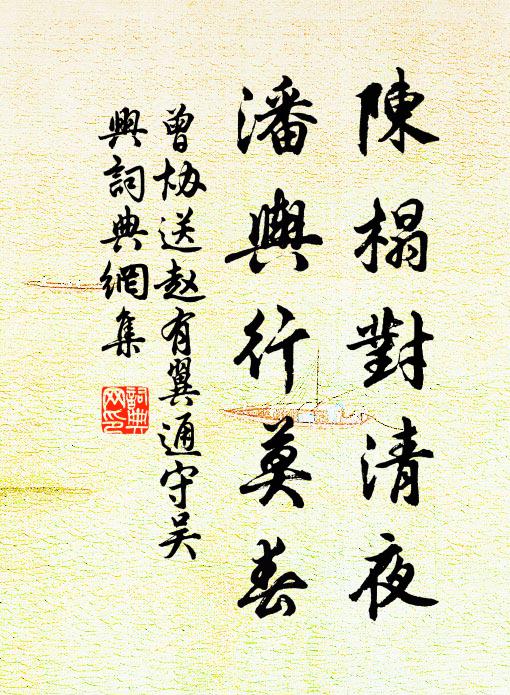 陳榻對清夜
潘輿行莫春
曾协送赵有翼通守吴
興詞典網集
詞典
网印